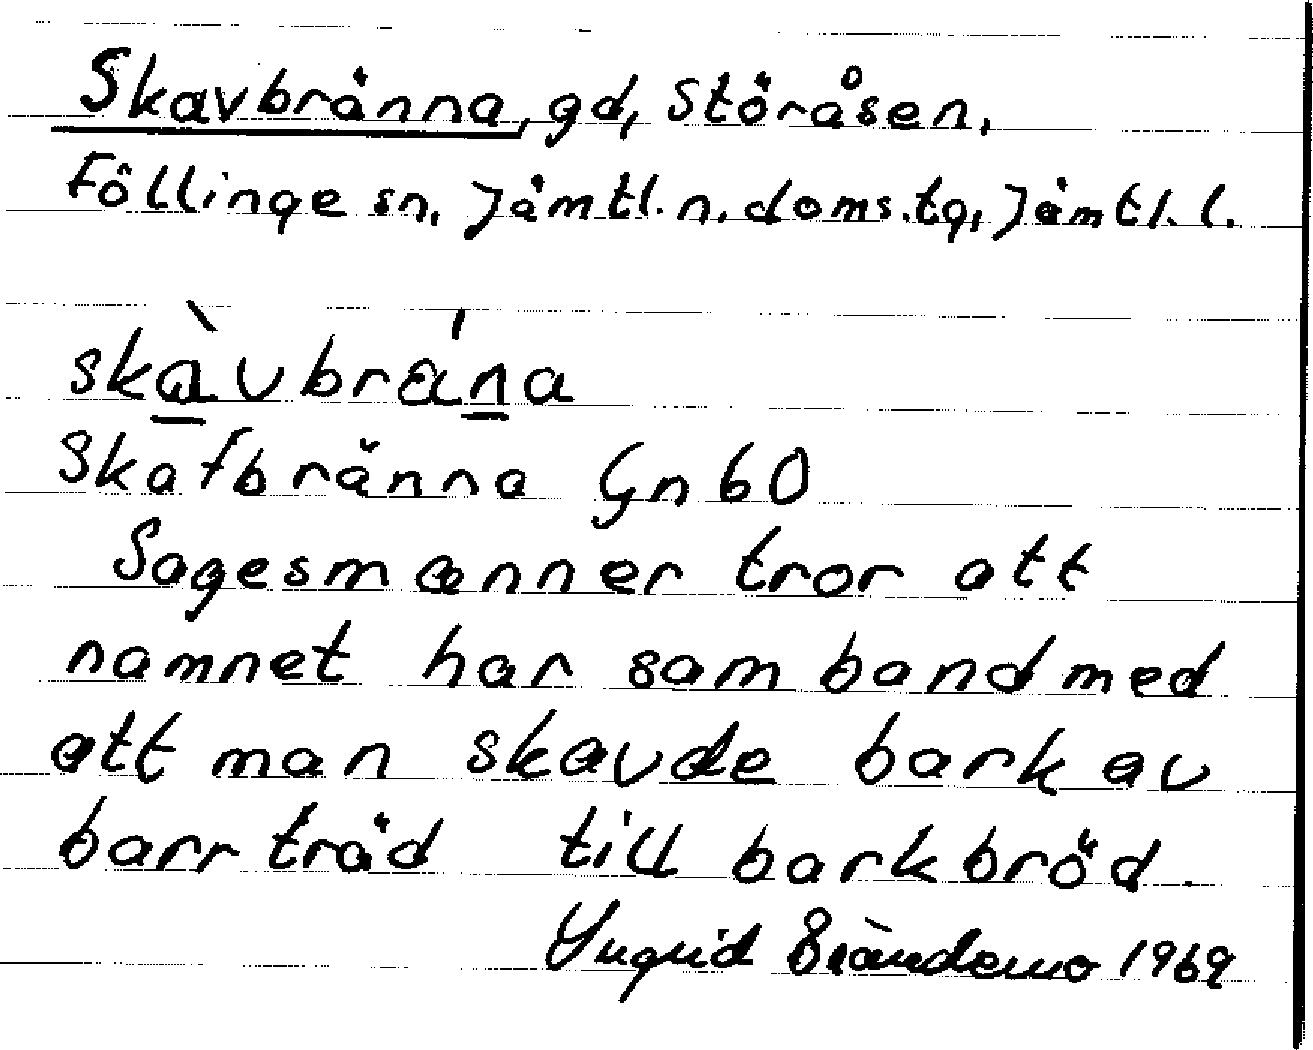 Skavbränna, gd, Störåsen,
Föllinge sn, Jämtl. n. doms. tg, Jämtl. l.
skàvbrǽna
Skafbränna Gn 60
Sagesmænner tror att
namnet har samband med
att man skavde bark av
barrträd till barkbröd.
Yngrid Brändemo 1969